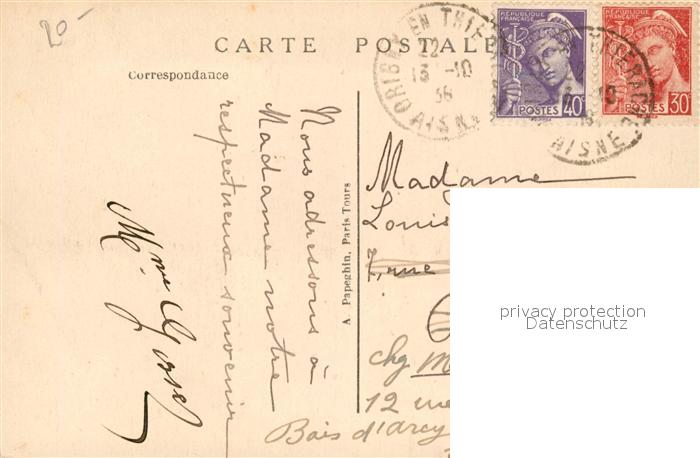 20-
CARTE POSTALE
Correspondance
Nous adressons à
Madame notre
respectueux souvenir
Mme
A. Papeghin, Paris Tours
ORIGNY EN THIE
13 -10
38
AISNE
RÉPUBLIQUE FRANÇAISE
POSTES 40c
RÉPUBLIQUE FRANÇAISE
POSTES 30c
10
AISNE
Madame
Louis
rue
chg M
12 rue
Bois d'Arcy
privacy protection
Datenschutz